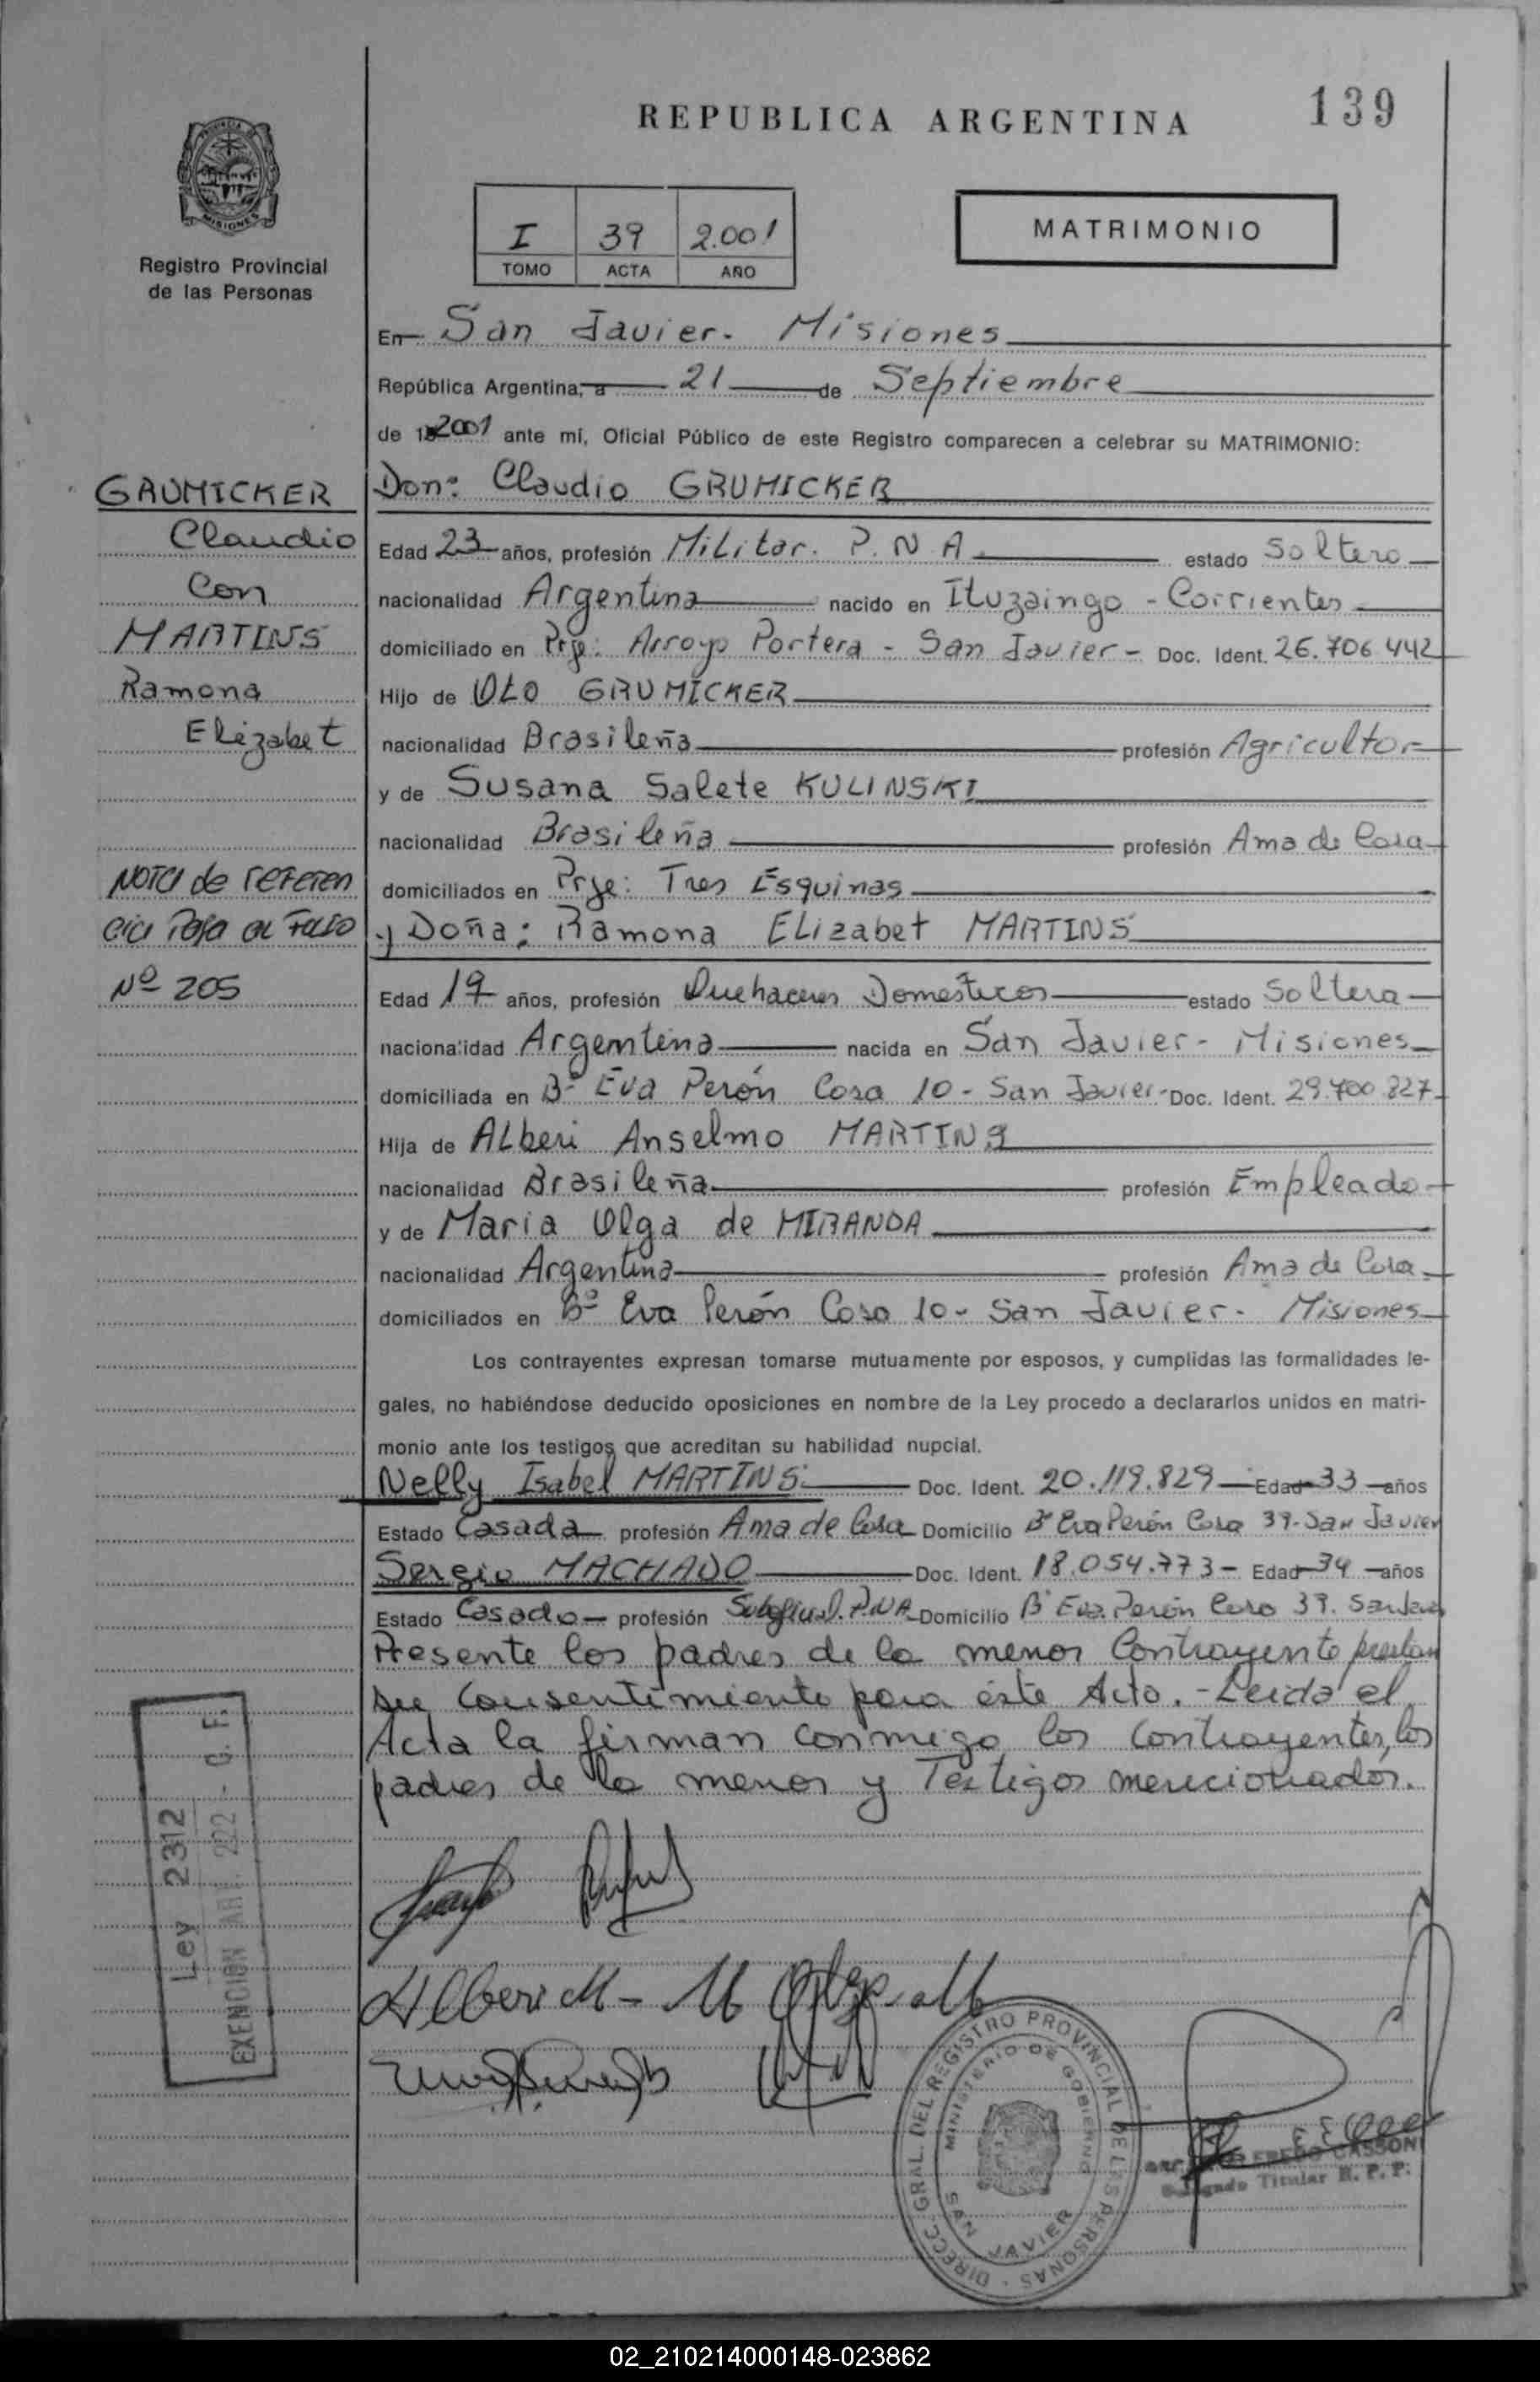 REPUBLICA ARGENTINA
139
PROVINCIA DE
MISIONES
Registro Provincial
de las Personas
I 39 2.001
TOMO ACTA AÑO
MATRIMONIO
En San Javier - Misiones
República Argentina, a 21 de Septiembre
de 2001 ante mí, Oficial Público de este Registro comparecen a celebrar su MATRIMONIO:
Don: Claudio GRUMICKER
Edad 23 años, profesión Militar. P.N.A. estado Soltero
nacionalidad Argentina nacido en Ituzaingo - Corrientes
domiciliado en Prje: Arroyo Portera - San Javier - Doc. Ident. 26.706.442
Hijo de Oto GRUMICKER
nacionalidad Brasileña profesión Agricultor
y de Susana Salete KULINSKI
nacionalidad Brasileña profesión Ama de Casa
domiciliados en Prje: Tres Esquinas
y Doña: Ramona Elizabet MARTINS
Edad 19 años, profesión Quehaceres Domesticos estado Soltera
nacionalidad Argentina nacida en San Javier - Misiones
domiciliada en Bº Eva Perón Casa 10 - San Javier - Doc. Ident. 29.700.827
Hija de Alberi Anselmo MARTINS
nacionalidad Brasileña profesión Empleado
y de Maria Olga de MIRANDA
nacionalidad Argentina profesión Ama de Casa
domiciliados en Bº Eva Perón Casa 10 - San Javier - Misiones
Los contrayentes expresan tomarse mutuamente por esposos, y cumplidas las formalidades le-
gales, no habiéndose deducido oposiciones en nombre de la Ley procedo a declararlos unidos en matri-
monio ante los testigos que acreditan su habilidad nupcial.
Nelly Isabel MARTINS Doc. Ident. 20.119.829 Edad 33 años
Estado Casada profesión Ama de Casa Domicilio Bº Eva Perón Casa 39 - San Javier
Sergio MACHADO Doc. Ident. 18.054.773 - Edad 34 años
Estado Casado profesión Suboficial. P.N.A. Domicilio Bº Eva Perón Casa 39. San Javier
Presente los padres de la menor Contrayente prestan
su Consentimiento para éste Acto. - Leida el
Acta la firman conmigo los Contrayentes, los
padres de la menor y Testigos mencionados.
GRUMICKER
Claudio
Con
MARTINS
Ramona
Elizabet
NOTA de referen
cia Pasa al Folio
Nº 205
Ley 2312
EXENCION ART. 222 - C. F.
Alberi M - M Olga M
DIRECC. GRAL. DEL REGISTRO PROVINCIAL DE LAS PERSONAS
MINISTERIO DE GOBIERNO
SAN JAVIER
Delegado Titular R. P. P.
02_210214000148-023862